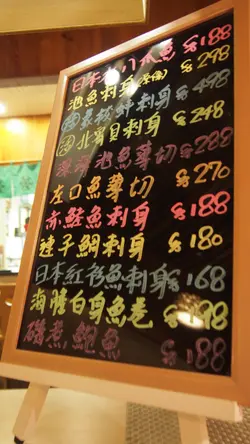 日本 八爪魚 $188
池魚刺身 $298
刺身 $498
北寄貝刺身 $248
池魚薄切 $288
左口魚薄切 $270
赤鮭魚刺身 $188
種子鯛刺身 $180
日本紅衫魚刺身 $168
海膽白身魚卷 $198
磯煮鮑魚 $188